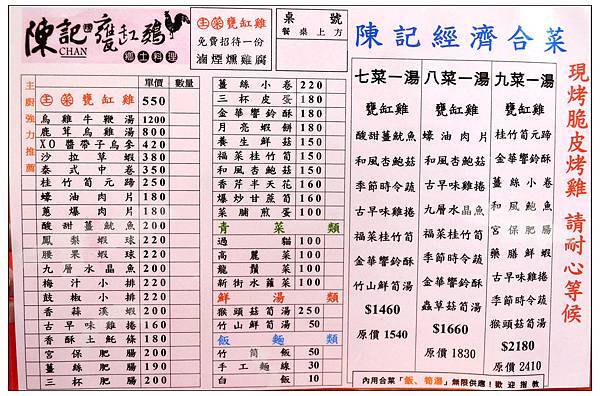 陳記甕缸雞
CHAN
鄉土料理
主菜甕缸雞
免費招待一份
滷煙燻雞腐
桌號
餐桌上方
單價 數量
主廚強力推薦
主菜甕缸雞 550
烏雞牛鞭湯 1200
鹿茸烏雞湯 800
XO醬帶子烏參 420
沙拉草蝦 380
泰式中卷 350
桂竹筍元蹄 250
蠔油肉片 180
蔥爆肉片 180
酸甜薑魷魚 200
鳳梨蝦球 220
腰果蝦球 220
九層水晶魚 200
梅汁小排 220
鼓椒小排 220
香蒜溪蝦 200
古早味雞捲 160
香酥土魠條 180
宮保肥腸 200
薑絲肥腸 200
三杯肥腸 200
薑絲小卷 220
三杯皮蛋 180
金華響鈴酥 180
月亮蝦餅 180
養生鮮菇 150
福菜桂竹筍 150
和風杏鮑菇 150
香芹半天花 160
爆炒甘蔗筍 160
菜脯煎蛋 100
青菜類
過貓 100
高麗菜 100
龍鬚菜 100
新街水蓮菜 100
鮮湯類
猴頭菇筍湯 250
竹山鮮筍湯 50
飯麵類
竹筒飯 50
手工麵線 30
白飯 10
陳記經濟合菜
七菜一湯
甕缸雞
酸甜薑魷魚
和風杏鮑菇
季節時令蔬
古早味雞捲
福菜桂竹筍
金華響鈴酥
竹山鮮筍湯
$1460
原價 1540
八菜一湯
甕缸雞
蠔油肉片
和風杏鮑菇
古早味雞捲
九層水晶魚
季節時令蔬
福菜桂竹筍
金華響鈴酥
蟲草菇筍湯
$1660
原價 1830
九菜一湯
甕缸雞
桂竹筍元蹄
金華響鈴酥
薑絲小卷
和風鮑魚
宮保肥腸
藥膳鮮蝦
古早味雞捲
季節時令蔬
猴頭菇筍湯
$2180
原價 2410
現烤脆皮烤雞 請耐心等候
內用合菜「飯、筍湯」無限供應!歡迎指教